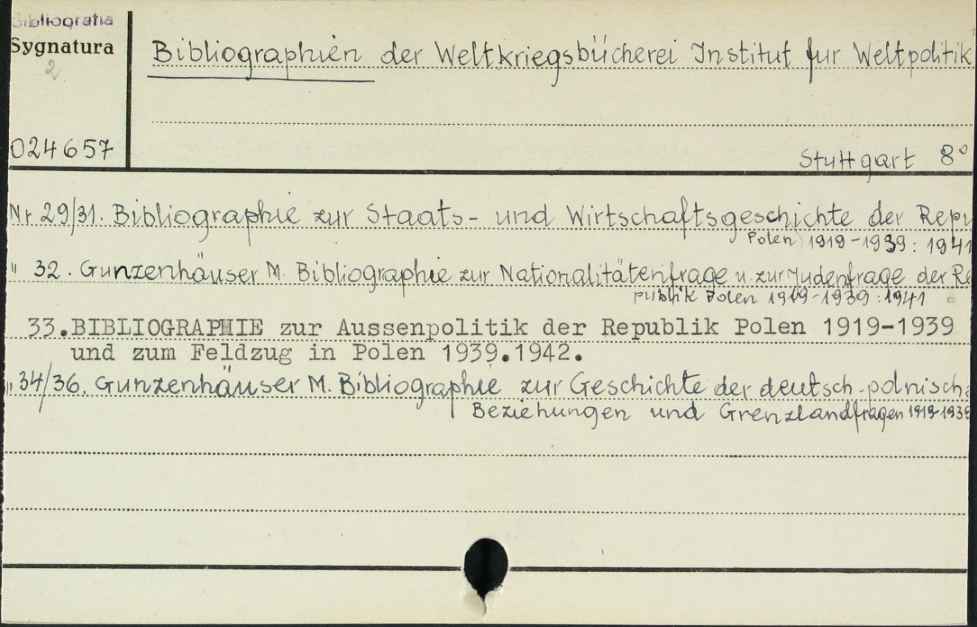 Bibliografia
Sygnatura
2
024657
Bibliographien der Weltkriegsbücherei Institut fur Weltpolitik
Stuttgart 8°
Nr. 29/31. Bibliographie zur Staats- und Wirtschaftsgeschichte der Repu
Polen 1919-1939: 1941
" 32. Gunzenhäuser M. Bibliographie zur Nationalitätenfrage u. zur Judenfrage der Re
publik Polen 1919-1939:1941
33. BIBLIOGRAPHIE zur Aussenpolitik der Republik Polen 1919-1939
und zum Feldzug in Polen 1939.1942.
" 34/36. Gunzenhäuser M. Bibliographie zur Geschichte der deutsch-polnisch
Beziehungen und Grenzlandfragen 1919-1939